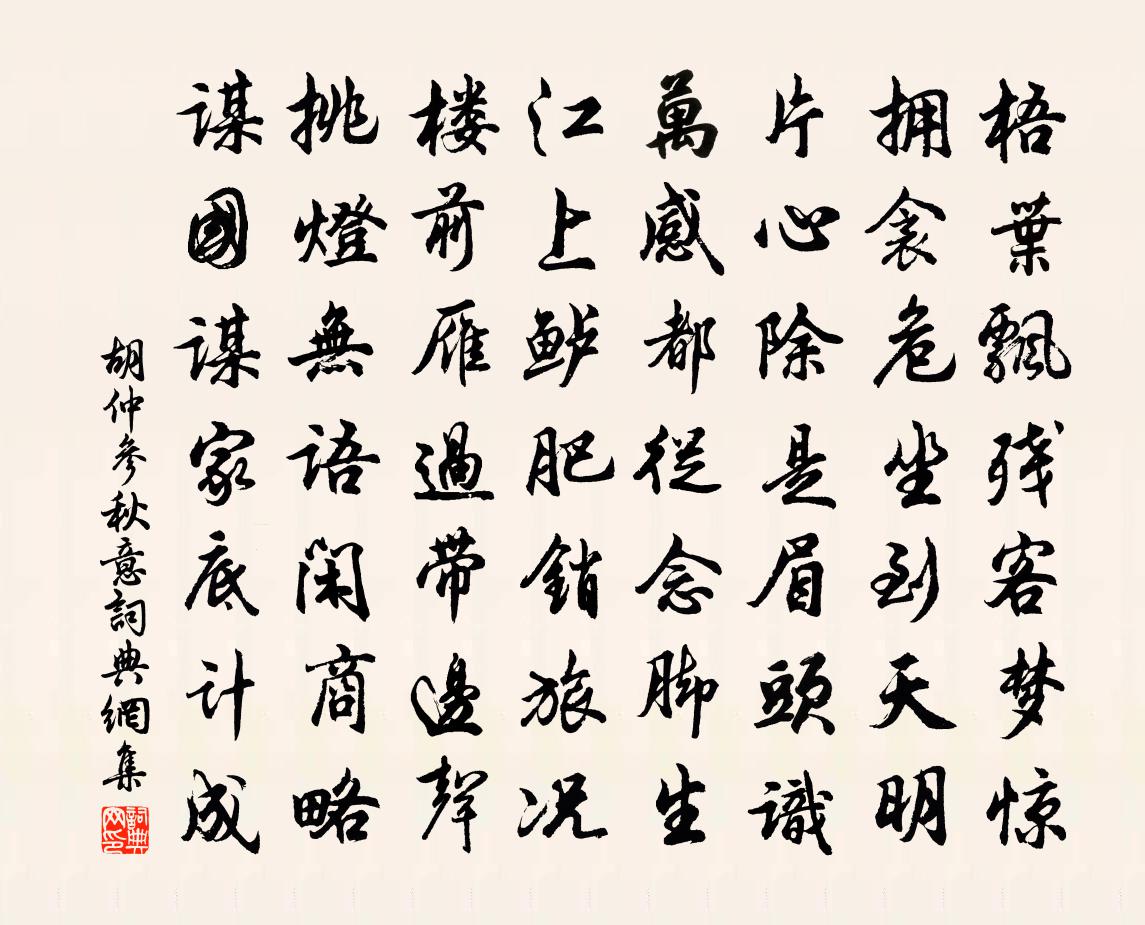 梧葉飄残客梦惊
拥衾危坐到天明
片心除是眉頭識
萬感都從念脚生
江上鲈肥銷旅况
楼前雁過帶邊聲
挑燈無語闲商略
謀國謀家底计成
胡仲參秋意詞典網集
詞典网印